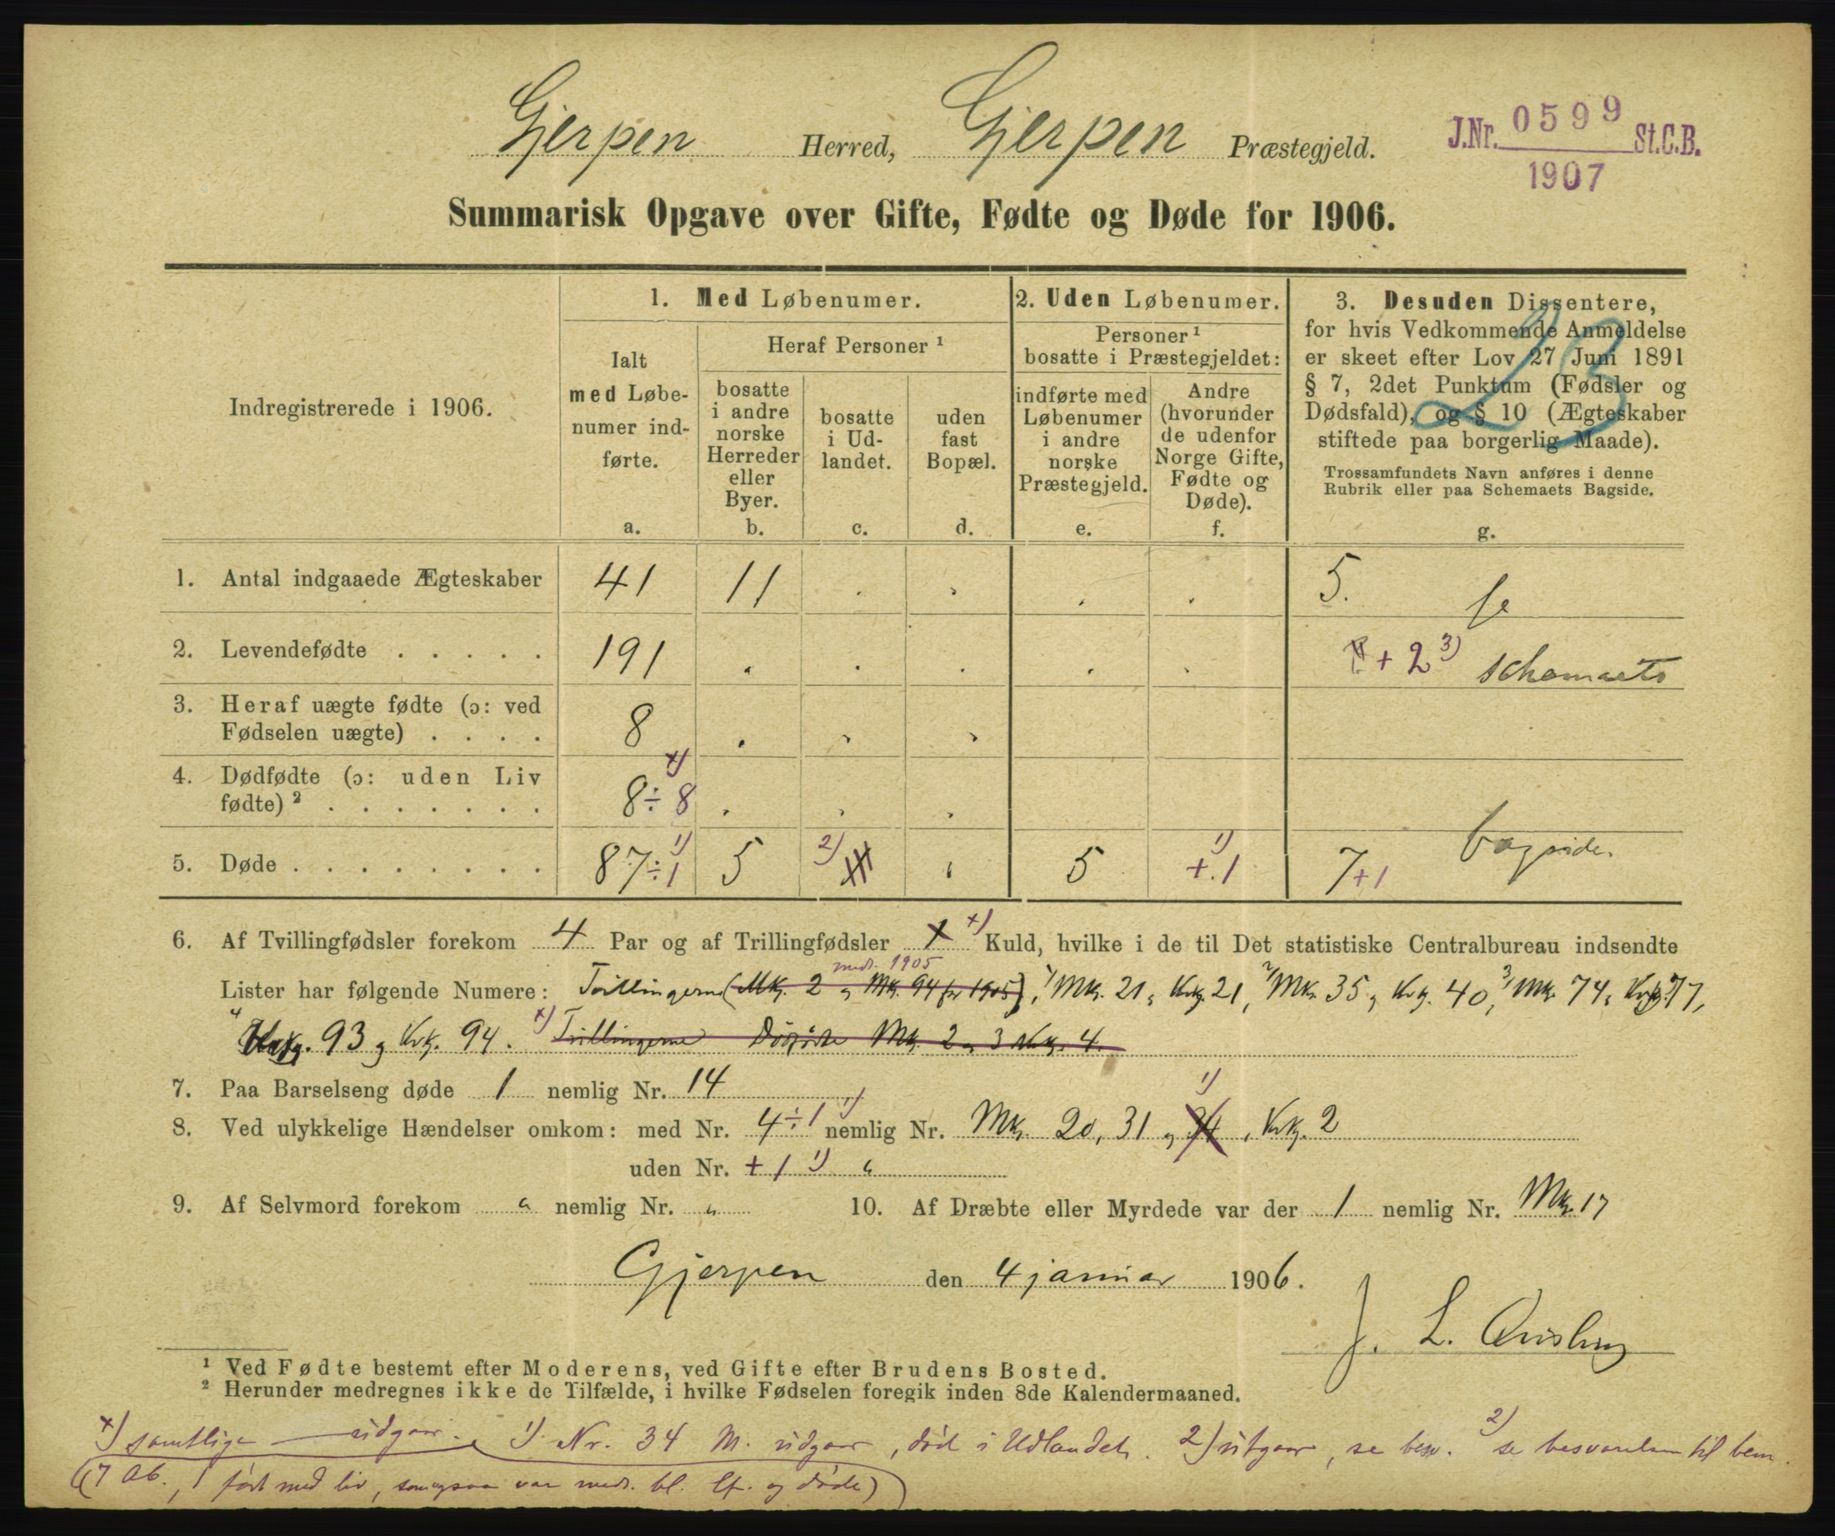 Gjerpen Herred, Gjerpen Præstegjeld.
J.Nr. 0599 St.C.B.
1907
Summarisk Opgave over Gifte, Fødte og Døde for 1906.
Indregistrerede i 1906.
1. Med Løbenumer.
Ialt
med Løbe-
numer ind-
førte.
a.
Heraf Personer ¹
bosatte
i andre
norske
Herreder
eller
Byer.
b.
bosatte
i Ud-
landet.
c.
uden
fast
Bopæl.
d.
2. Uden Løbenumer.
Personer ¹
bosatte i Præstegjeldet:
indførte med
Løbenumer
i andre
norske
Præstegjeld.
e.
Andre
(hvorunder
de udenfor
Norge Gifte,
Fødte og
Døde).
f.
3. Desuden Dissentere,
for hvis Vedkommende Anmeldelse
er skeet efter Lov 27 Juni 1891
§ 7, 2det Punktum (Fødsler og
Dødsfald), og § 10 (Ægteskaber
stiftede paa borgerlig Maade).
Trossamfundets Navn anføres i denne
Rubrik eller paa Schemaets Bagside.
g.
23
1. Antal indgaaede Ægteskaber 41 11 . . . . 5. se
2. Levendefødte . . . . . 191 . . . . . + 2 3) schemaets
3. Heraf uægte fødte (ɔ: ved
Fødselen uægte) . . . . 8 . . .
4. Dødfødte (ɔ: uden Liv
fødte) ² . . . . . . . 8 ÷ 8 ×) . . .
5. Døde . . . . . . . . 87 ÷ 1 1) 5 2) 5 +.1 1) 7+1 bagside.
6. Af Tvillingfødsler forekom 4 Par og af Trillingfødsler 1 ×) Kuld, hvilke i de til Det statistiske Centralbureau indsendte
medr. 1905
Lister har følgende Numere: Trillingerne (Mk. 2 og Mk. 94 for 1905), 1) Mk. 21 og Kvk. 21, 2) Mk. 35 og Kvk. 40, 3) Mk. 74 og Kvk. 77,
4) 93 og Kvk. 94. ×) Trillingerne Dødfødte Mk. 2 og 3 Kvk. 4.
7. Paa Barselseng døde 1 nemlig Nr. 14
8. Ved ulykkelige Hændelser omkom: med Nr. 4 ÷ 1 1) nemlig Nr. Mk. 20, 31 og 34 1), Kvk. 2
uden Nr. + 1 1) "
9. Af Selvmord forekom " nemlig Nr. " 10. Af Dræbte eller Myrdede var der 1 nemlig Nr. Mk. 17
Gjerpen den 4 januar 1906.
J. L. Qvisling
¹ Ved Fødte bestemt efter Moderens, ved Gifte efter Brudens Bosted.
² Herunder medregnes ikke de Tilfælde, i hvilke Fødselen foregik inden 8de Kalendermaaned.
×) samtlige udgaar. 1) Nr. 34 M. udgaar, død i Udlandet. 2) utgaar, se besv. 2) se besvarelsen til bem.
(7 Ab., 1 født med liv, som ogsaa var medr. bl. lf. og døde)